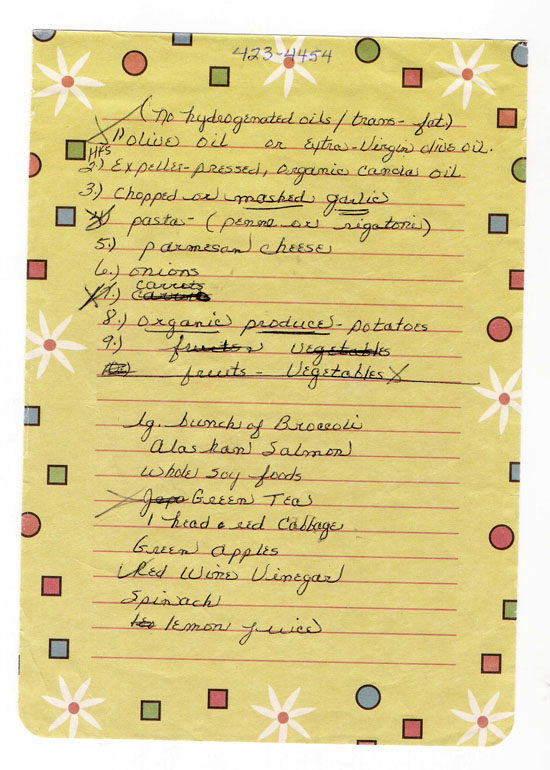 423-4454
(no hydrogenated oils/trans-fat)
1) olive oil or extra-virgin olive oil.
HFS
2.) Expeller-pressed, organic canola oil
3.) chopped or mashed garlic
4.) pasta - (penne or rigatoni)
5.) parmesan cheese
6.) onions
carrots
7.) carrots
8.) organic produce - potatoes
9.) fruits vegetables
10.) fruits - vegetables X
lg. bunch of Broccoli
Alaskan Salmon
whole soy foods
Japa Green Tea
1 head a red Cabbage
Green Apples
Red Wine Vinegar
Spinach
lemon juice